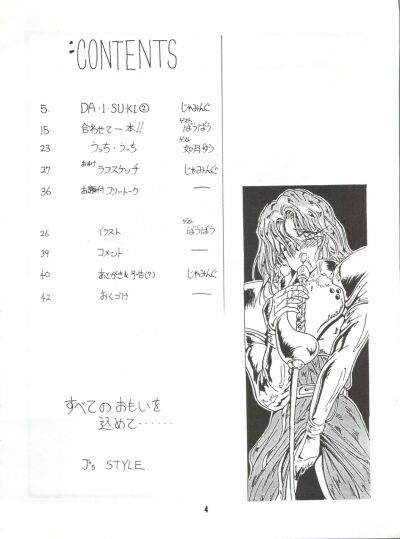 :CONTENTS
5. DA・I・SU・KI② じゃみんぐ
15 合わせて一本!! ゲスト ばうばう
23 うっち・うっち ゲスト 如月ゆう
27 おまけ ラフスケッチ じゃみんぐ
36 フリートーク —
26 イラスト ゲスト ばうばう
39 コメント —
40 あとがき& じゃみんぐ
42 おくづけ —
すべてのおもいを
込めて……
J's STYLE.
4